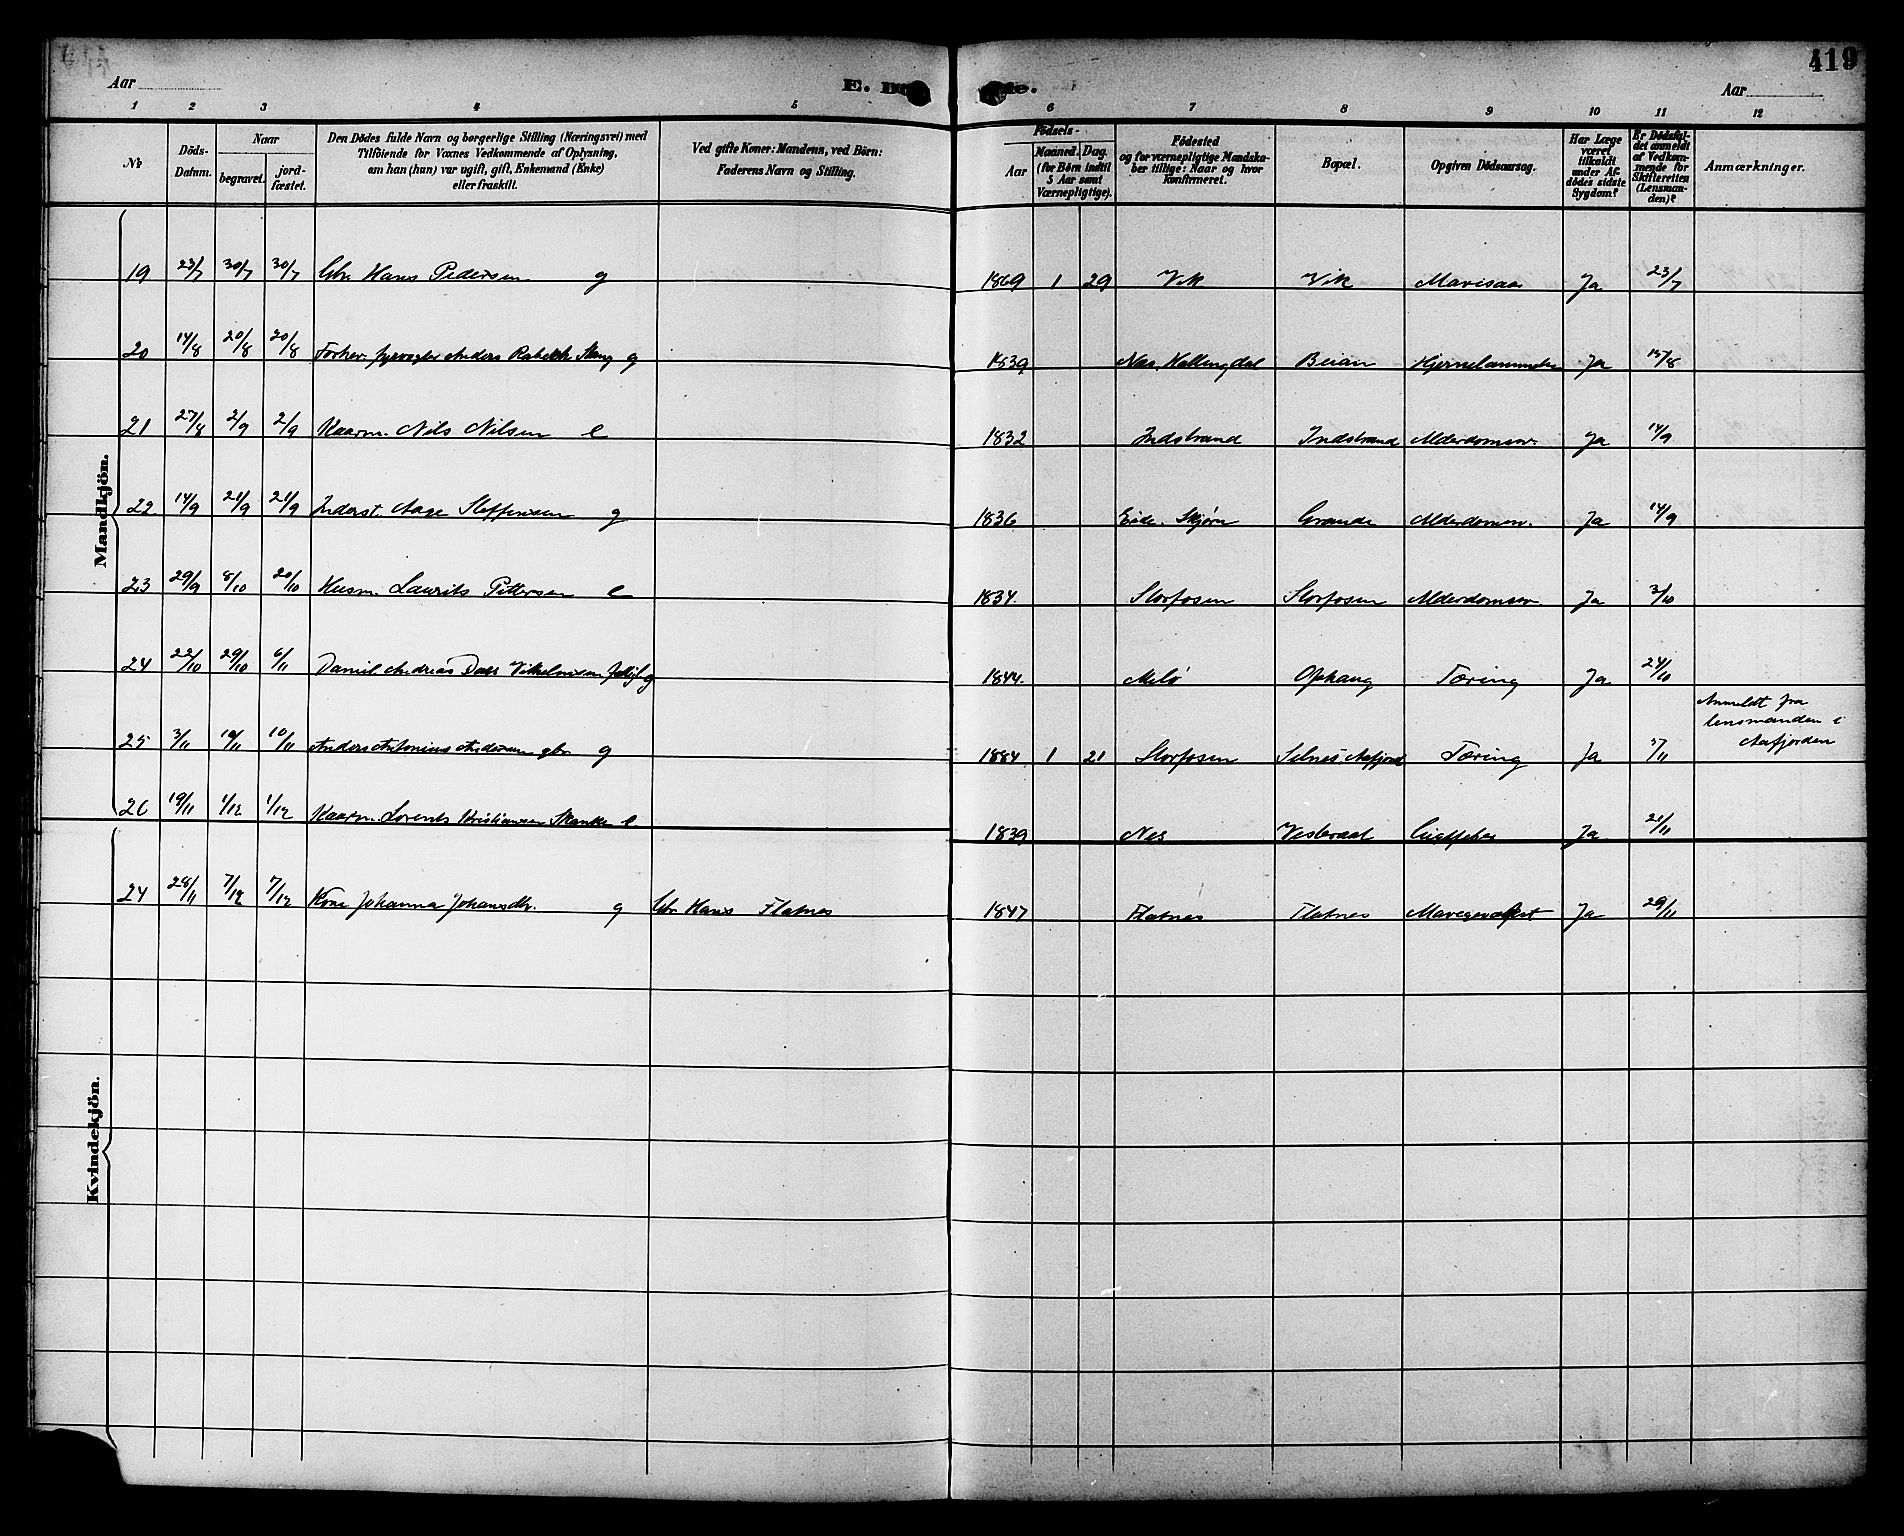 419
Aar
E. D de.
Aar
1 2 3 4 5 6 7 8 9 10 11 12
No
Döds-Datum.
Naar
begravet.
jordfæstet.
Den Dödes fulde Navn og borgerlige Stilling (Næringsvei) med
Tilföiende for Voxnes Vedkommende af Oplysning,
om han (hun) var ugift, gift, Enkemand (Enke)
eller fraskilt.
Ved gifte Koner: Mandens, ved Börn:
Faderens Navn og Stilling.
Födsels-
Aar
Maaned. Dag.
(for Børn indtil
5 Aar samt
Værnepligtige).
Fødested
og for værnepligtige Mandskaber tillige: Naar og hvor
konfirmeret.
Bopæl.
Opgiven Dödsaarsag.
Har Læge
været
tilkaldt
under Afdödes sidste
Sygdom?
Er Dödsfaldet anmeldt
af Vedkommende for
Skifteretten
(Lensmanden)?
Anmærkninger.
Mandkjön.
19 23/7 30/7 30/7 Gbr. Hans Pedersen g 1869 1 29 Vik Vik Ja 23/7
20 14/8 20/8 20/8 Forhen. fyrvogter Anders g 1839 Nes, Hallingdal Beian Ja 15/8
21 27/8 2/9 2/9 Kaarm. Nils Nilsen e 1832 Indstrand Indstrand Alderdomssv. Ja 14/9
22 14/9 21/9 21/9 Inderst. Aage Steffensen g 1836 Eide, Skjørn Grande Alderdomssv. Ja 14/9
23 29/9 8/10 20/10 Husm. Laurits Pettersen e 1834. Storfosen Storfosen Alderdomssv. Ja 3/10
24 22/10 29/10 6/11 Daniel Andreas Dass Vilhelmsen g 1844. Melø Ophaug Tæring Ja 24/10
25 3/11 10/11 10/11 Anders Antonius Andersen gbr. g 1884 1 21 Storfosen Selnes Aafjord Tæring Ja 5/11 Anmeldt fra
lensmanden i
Aafjorden
26 19/11 1/12 1/12 Kaarm. Lorents Kristiansen e. 1839 Nes Ja 21/11
Kvindekjön.
24 28/11 7/12 7/12 Kone Johanna Johansdtr. g Gbr. Hans Flatnes 1847 Flatnes Flatnes Ja 29/11